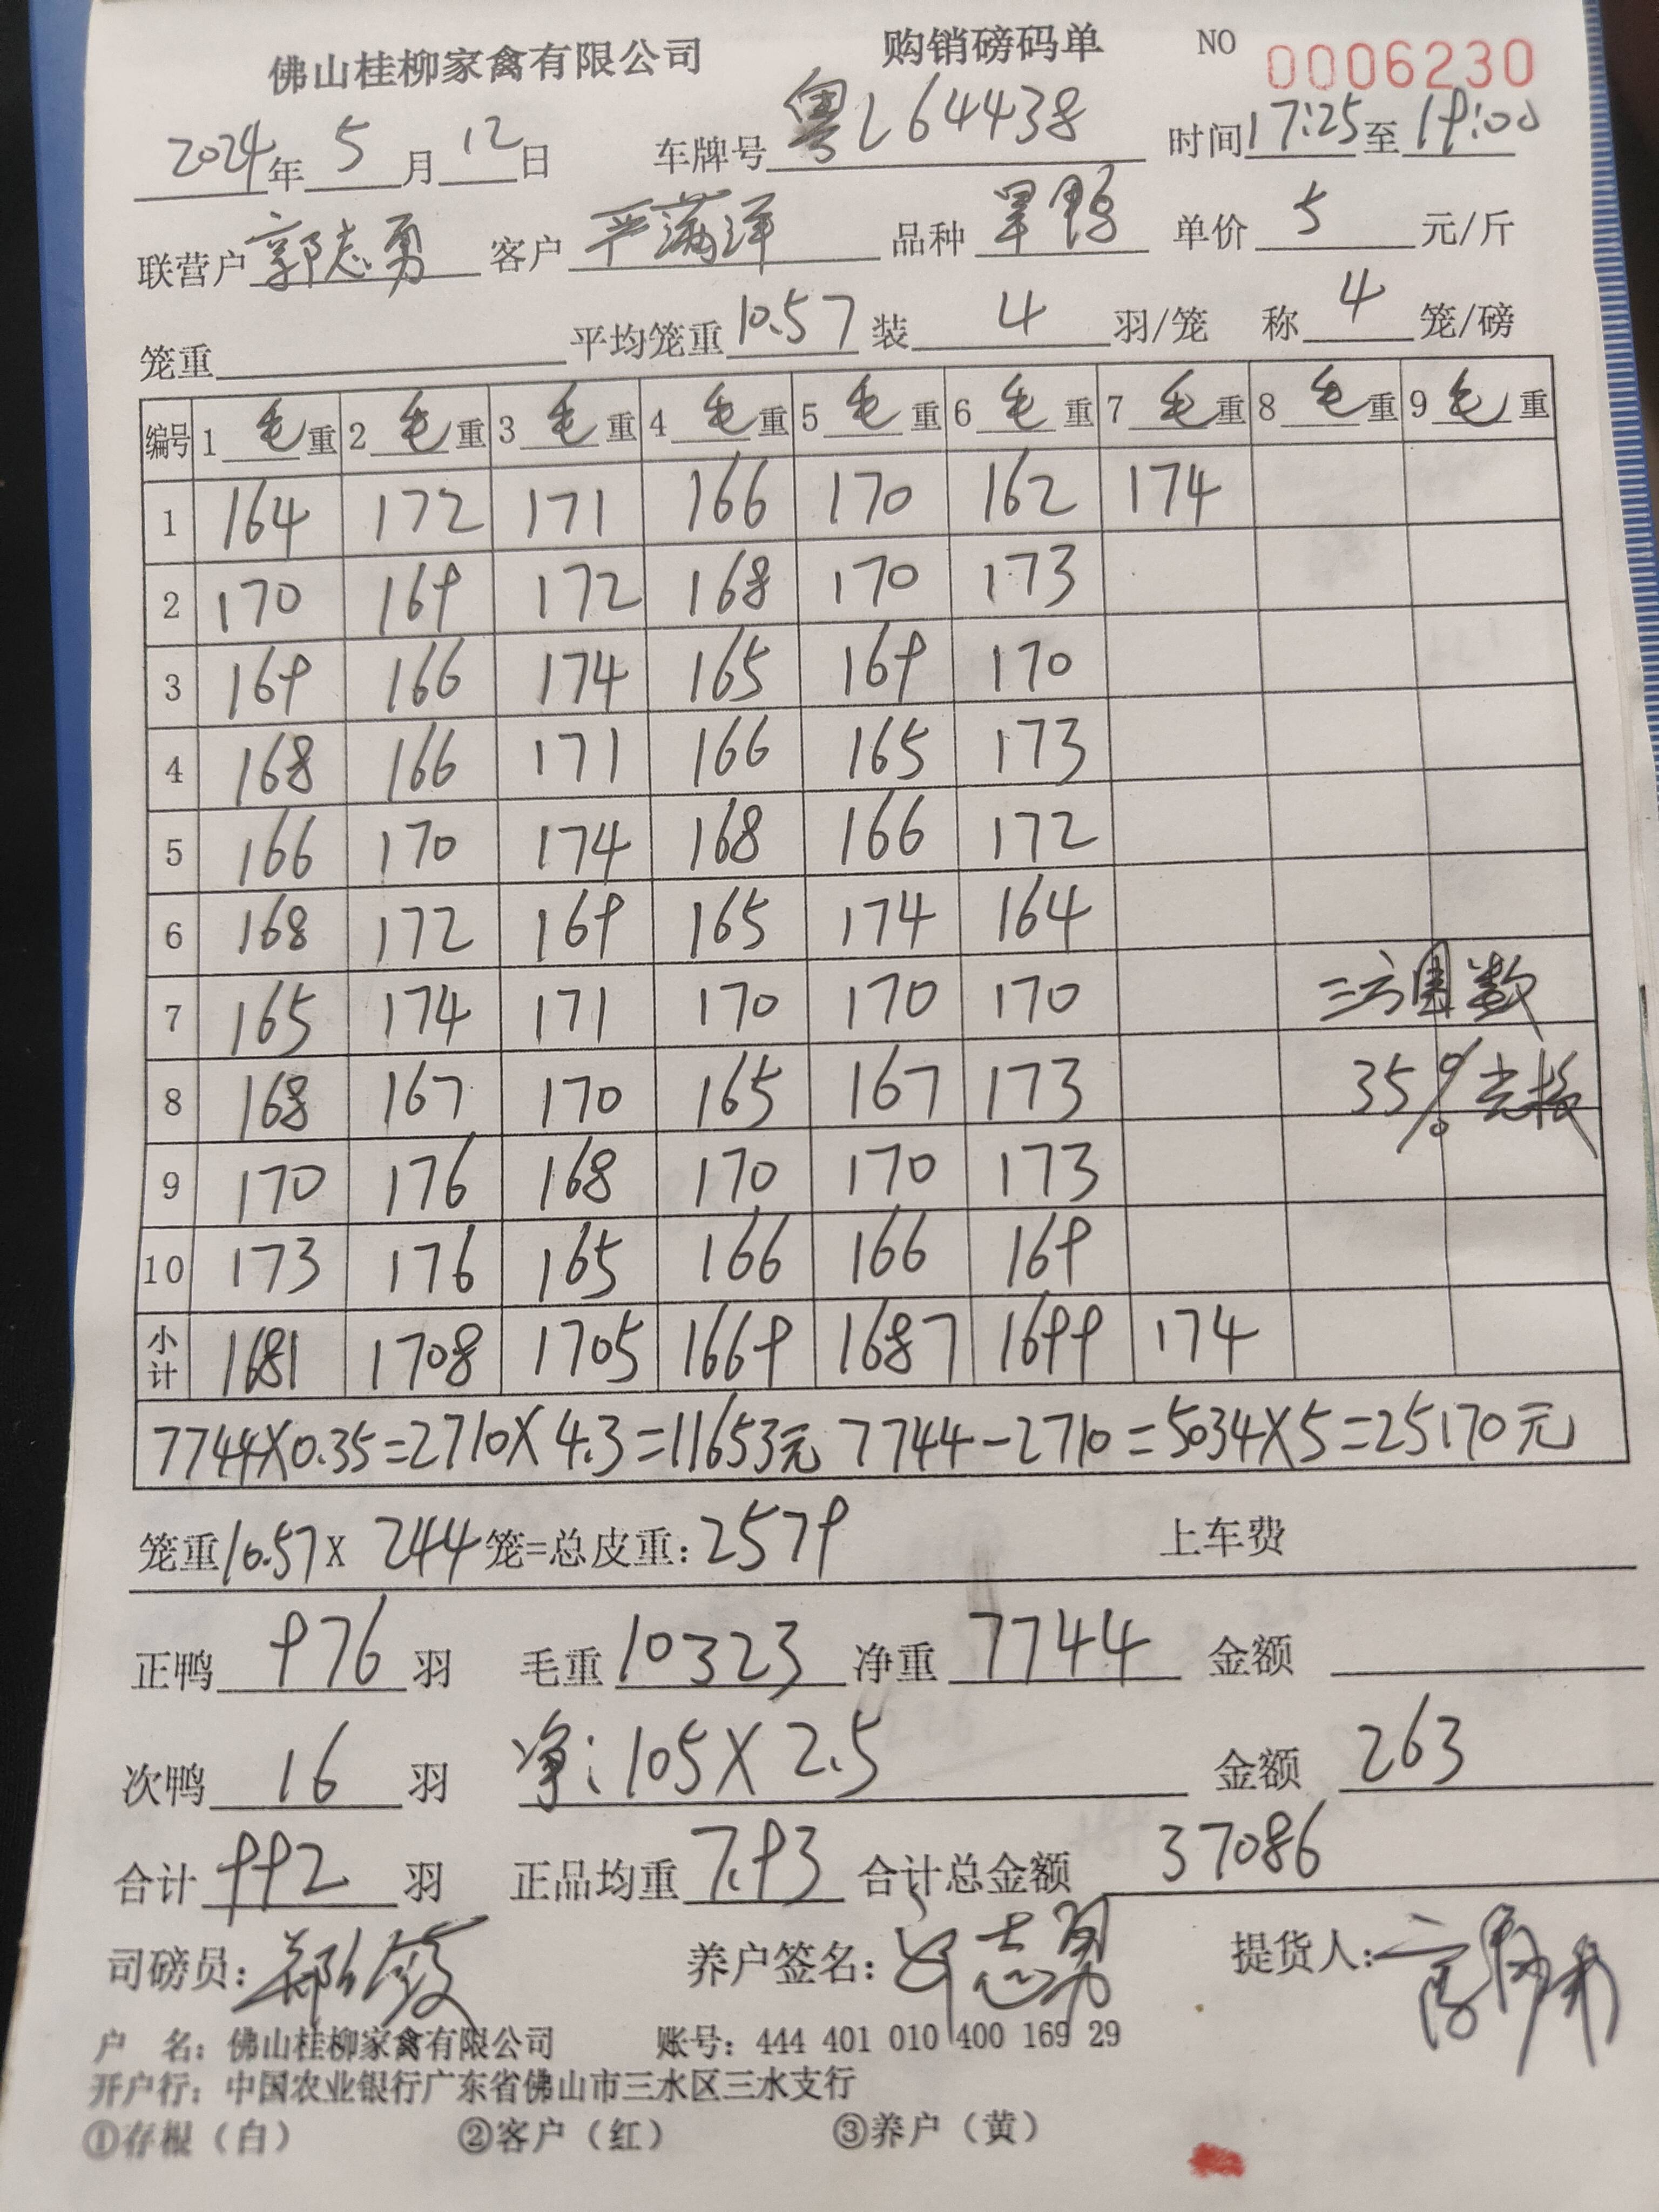 佛山桂柳家禽有限公司 购销磅码单 NO 0006230
2024年 5 月 12 日 车牌号 粤L64438 时间 17:25 至 19:00
联营户 郭志勇 客户 严满洋 品种 旱鸭 单价 5 元/斤
笼重 平均笼重 10.57 装 4 羽/笼 称 4 笼/磅
编号 1 毛重 2 毛重 3 毛重 4 毛重 5 毛重 6 毛重 7 毛重 8 毛重 9 毛重
1 164 172 171 166 170 162 174
2 170 169 172 168 170 173
3 169 166 174 165 169 170
4 168 166 171 166 165 173
5 166 170 174 168 166 172
6 168 172 169 165 174 164
7 165 174 171 170 170 170 三方 数
8 168 167 170 165 167 173 35%
9 170 176 168 170 170 173
10 173 176 165 166 166 169
小计 1681 1708 1705 1669 1687 1699 174
7744X0.35=2710X4.3=11653元 7744-2710=5034X5=25170元
笼重10.57X 244 笼=总皮重:2579 上车费
正鸭 976 羽 毛重 10323 净重 7744 金额
次鸭 16 羽 净:105X2.5 金额 263
合计 992 羽 正品均重 7.93 合计总金额 37086
司磅员: 养户签名: 志勇 提货人:
户 名:佛山桂柳家禽有限公司 账号:444 401 010 400 169 29
开户行:中国农业银行广东省佛山市三水区三水支行
①存根(白) ②客户(红) ③养户(黄)